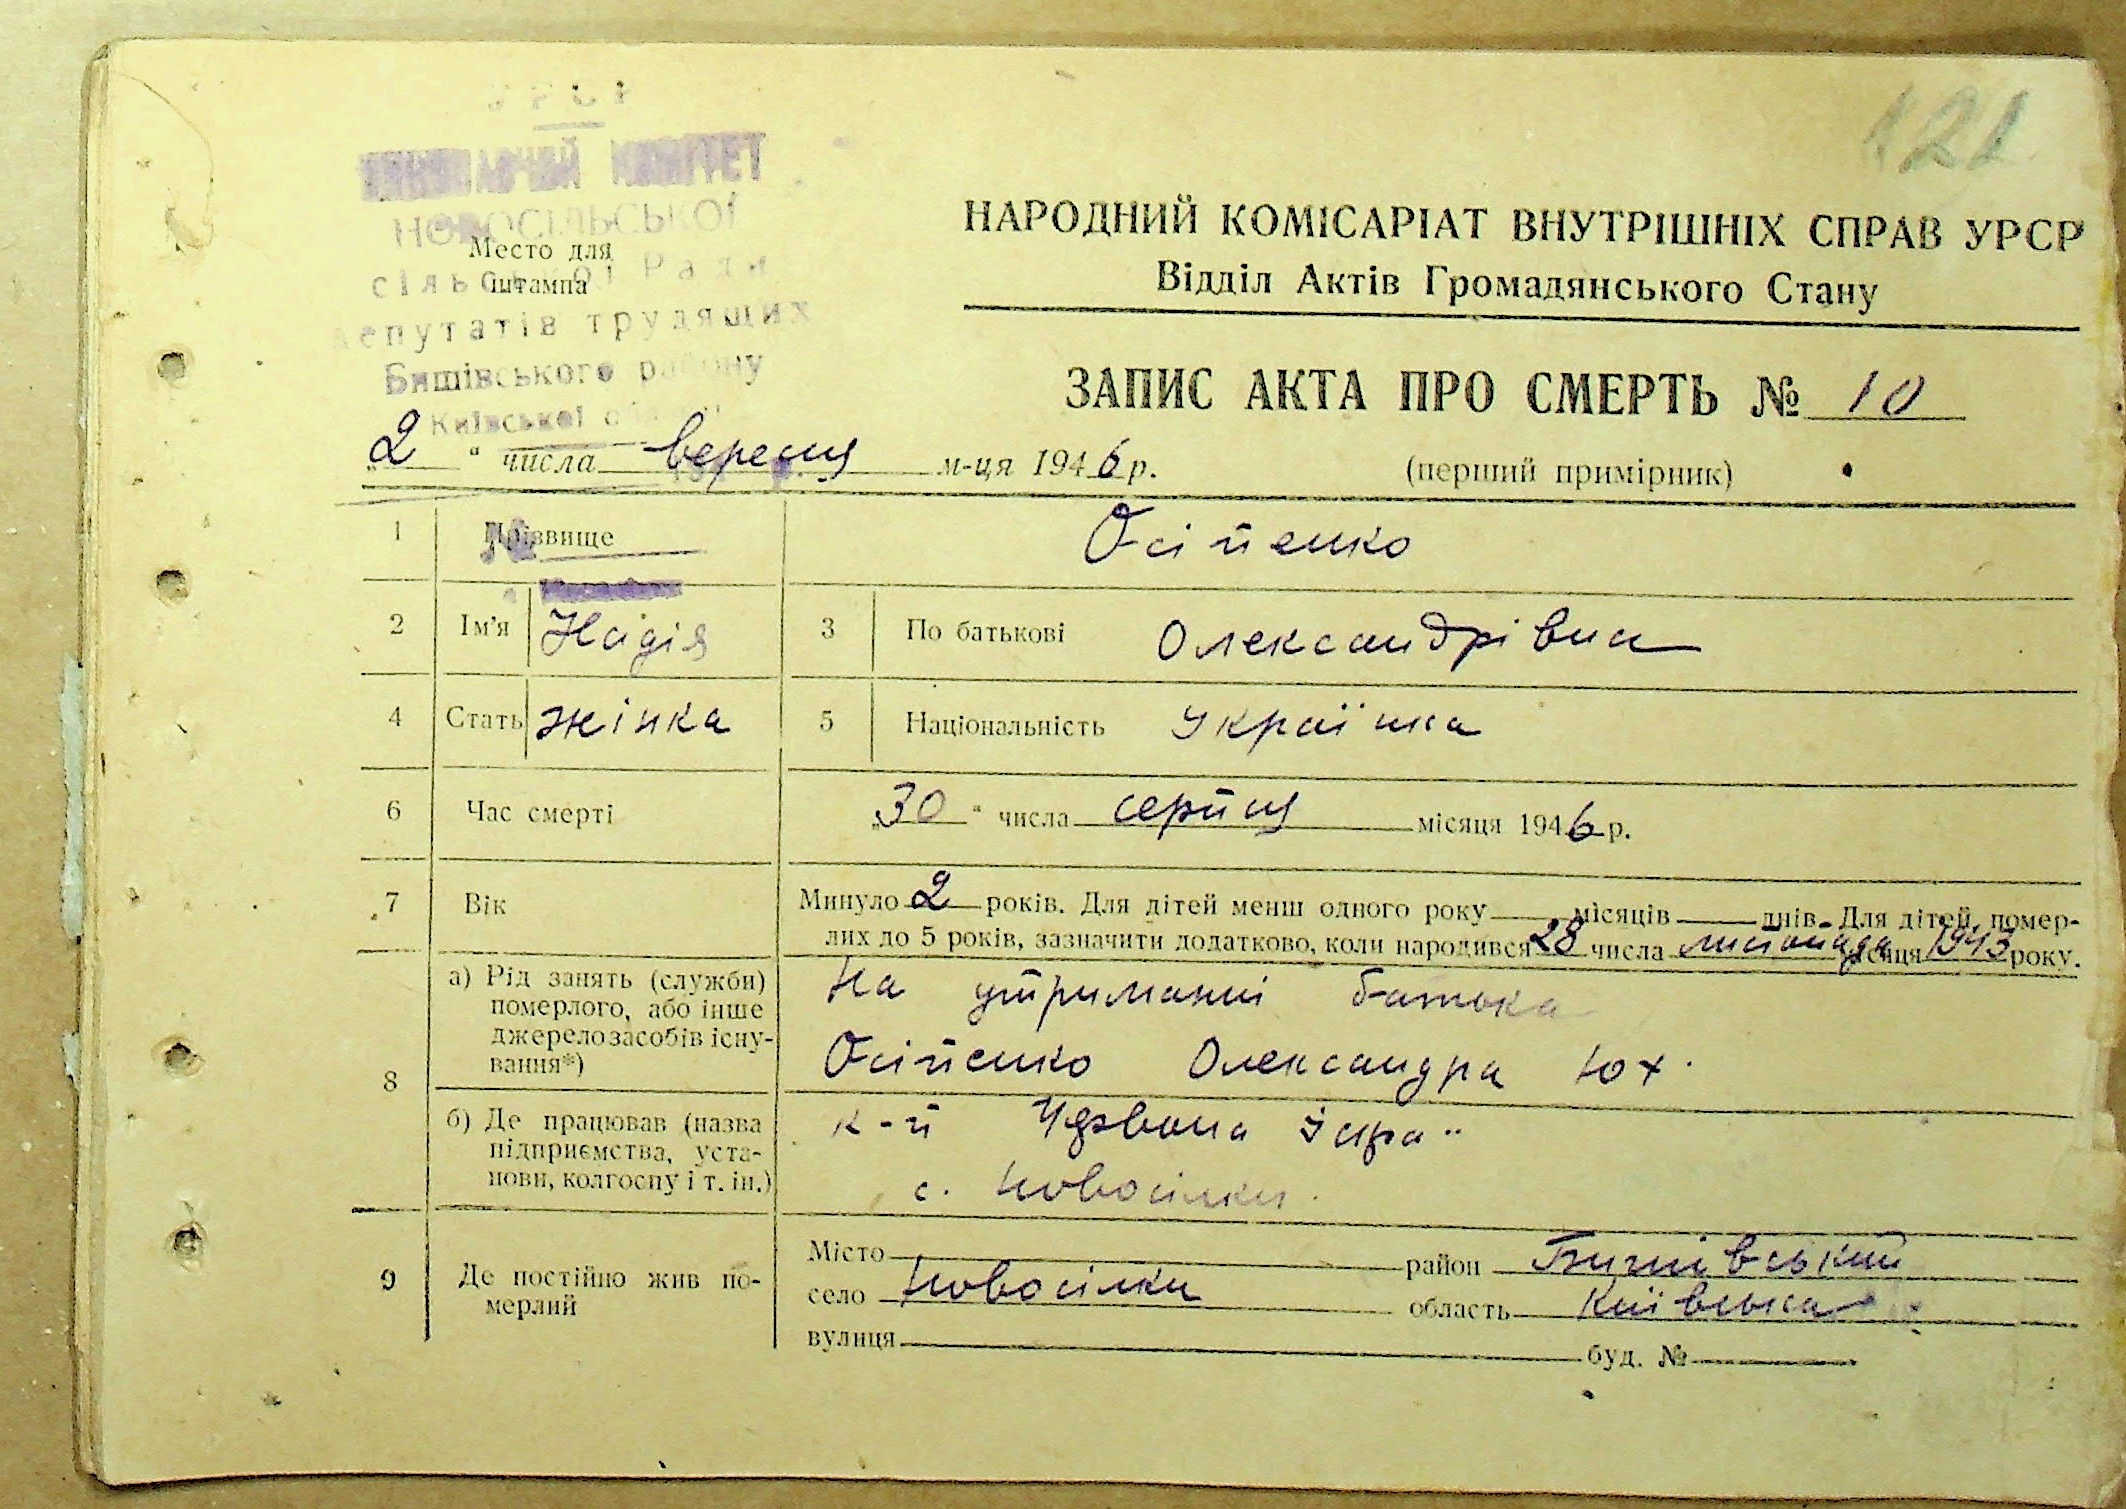 УРСР
ВИКОНАВЧИЙ КОМІТЕТ
НОВОСІЛЬСЬКОЇ
Место для
сільської Ради
штампа
депутатів трудящих
Бишівського району
Київської
121
НАРОДНИЙ КОМІСАРІАТ ВНУТРІШНІХ СПРАВ УРСР
Відділ Актів Громадянського Стану
ЗАПИС АКТА ПРО СМЕРТЬ № 10
„2“ числа вересня м-ця 1946 р.
(перший примірник)
1 Прізвище Осіпенко
2 Ім'я Надія 3 По батькові Олександрівна
4 Стать жінка 5 Національність Українка
6 Час смерті „30“ числа серпня місяця 1946 р.
7 Вік Минуло 2 років. Для дітей менш одного року місяців днів. Для дітей, помер-
лих до 5 років, зазначити додатково, коли народився 28 числа листопада місяця 1943 року.
8 а) Рід занять (служби)
померлого, або інше
джерело засобів існу-
вання*)
На утриманні батька
Осіпенко Олександра Юх.
б) Де працював (назва
підприємства, уста-
нови, колгоспу і т. ін.)
к-п Червона
с. Новосілки.
9 Де постійно жив по-
мерлий
Місто район Бишівський
село Новосілки область Київська
вулиця буд. №